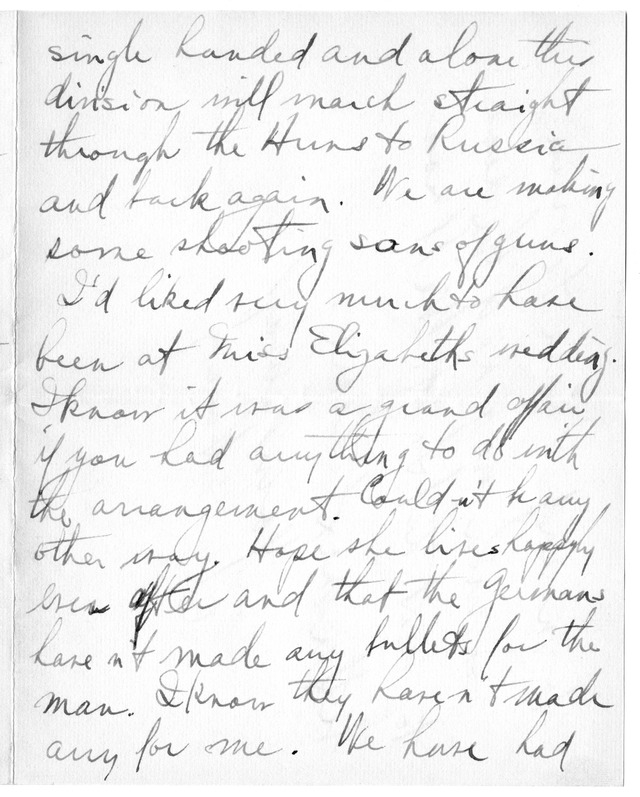 single handed and alone this
division will march straight
through the Huns to Russia
and back again. We are making
some shooting sons of guns.
I'd liked very much to have
been at Miss Elizabeths wedding.
I know it was a grand affair
if you had anything to do with
the arrangement. Couldn't be any
other way. Hope she lives happyly
ever after and that the Germans
haven't made any bullets for the
man. I know they haven't made
any for me. We have had